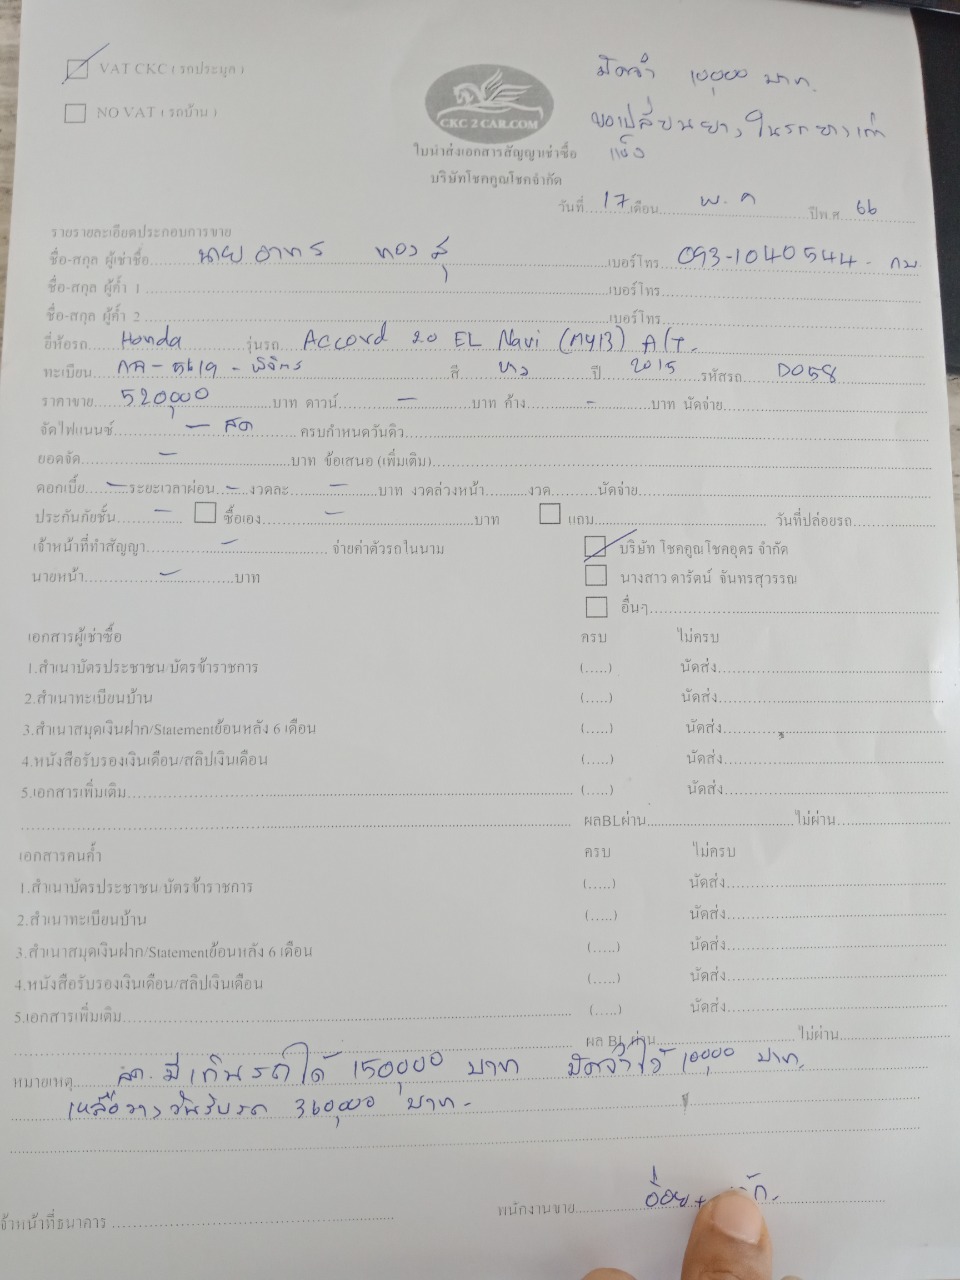 VAT CKC ( รถประมูล )
มัดจำ 10,000 บาท.
NO VAT ( รถบ้าน )
ขอเปลี่ยนยาง ในรถยางเก่า
แข็ง
CKC 2 CAR.COM
ใบนำส่งเอกสารสัญญาเช่าซื้อ
บริษัทโชคคูณโชคจำกัด
วันที่ 17 เดือน พ.ค ปีพ.ศ. 66
รายรายละเอียดประกอบการขาย
ชื่อ-สกุล ผู้เช่าซื้อ นาย อาทร ทอง เบอร์โทร 093-1040544
ชื่อ-สกุล ผู้ค้ำ 1 เบอร์โทร
ชื่อ-สกุล ผู้ค้ำ 2 เบอร์โทร
ยี่ห้อรถ Honda รุ่นรถ Accord 2.0 EL Navi (MY13) A/T.
ทะเบียน 5619 - พิจิตร สี ขาว ปี 2015 รหัสรถ D058
ราคาขาย 520,000 บาท ดาวน์ - บาท ค้าง - บาท นัดจ่าย
จัดไฟแนนซ์ - สด ครบกำหนดวันคิว
ยอดจัด - บาท ข้อเสนอ (เพิ่มเติม)
ดอกเบี้ย - ระยะเวลาผ่อน - งวดละ - บาท งวดล่วงหน้า งวด นัดจ่าย
ประกันภัยชั้น - ซื้อเอง - บาท แถม วันที่ปล่อยรถ
เจ้าหน้าที่ทำสัญญา - จ่ายค่าตัวรถในนาม บริษัท โชคคูณโชคอุดร จำกัด
นายหน้า - บาท นางสาว ดารัตน์ จันทรสุวรรณ
อื่นๆ
เอกสารผู้เช่าซื้อ ครบ ไม่ครบ
1.สำเนาบัตรประชาชน/บัตรข้าราชการ (.....) นัดส่ง
2.สำเนาทะเบียนบ้าน (.....) นัดส่ง
3.สำเนาสมุดเงินฝาก/Statementย้อนหลัง 6 เดือน (.....) นัดส่ง
4.หนังสือรับรองเงินเดือน/สลิปเงินเดือน (.....) นัดส่ง
5.เอกสารเพิ่มเติม (.....) นัดส่ง
ผลBLผ่าน ไม่ผ่าน
เอกสารคนค้ำ ครบ ไม่ครบ
1.สำเนาบัตรประชาชน/บัตรข้าราชการ (.....) นัดส่ง
2.สำเนาทะเบียนบ้าน (.....) นัดส่ง
3.สำเนาสมุดเงินฝาก/Statementย้อนหลัง 6 เดือน (.....) นัดส่ง
4.หนังสือรับรองเงินเดือน/สลิปเงินเดือน (.....) นัดส่ง
5.เอกสารเพิ่มเติม (.....) นัดส่ง
ผล BL ผ่าน ไม่ผ่าน
หมายเหตุ ลค. มีเทินรถได้ 150,000 บาท มัดจำไว้ 10,000 บาท.
เหลือวางวันรับรถ 360,000 บาท.
เจ้าหน้าที่ธนาคาร พนักงานขาย อ้อย +